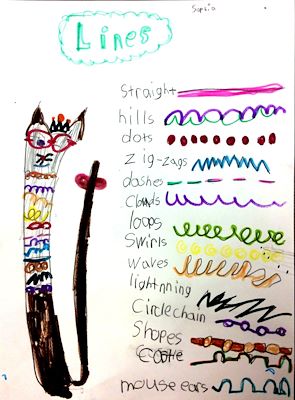 Sophia
Lines
Straight
hills
dots
zig-zags
dashes
Clouds
loops
Swirls
waves
lightnning
Circlechain
Shopes
mouse ears